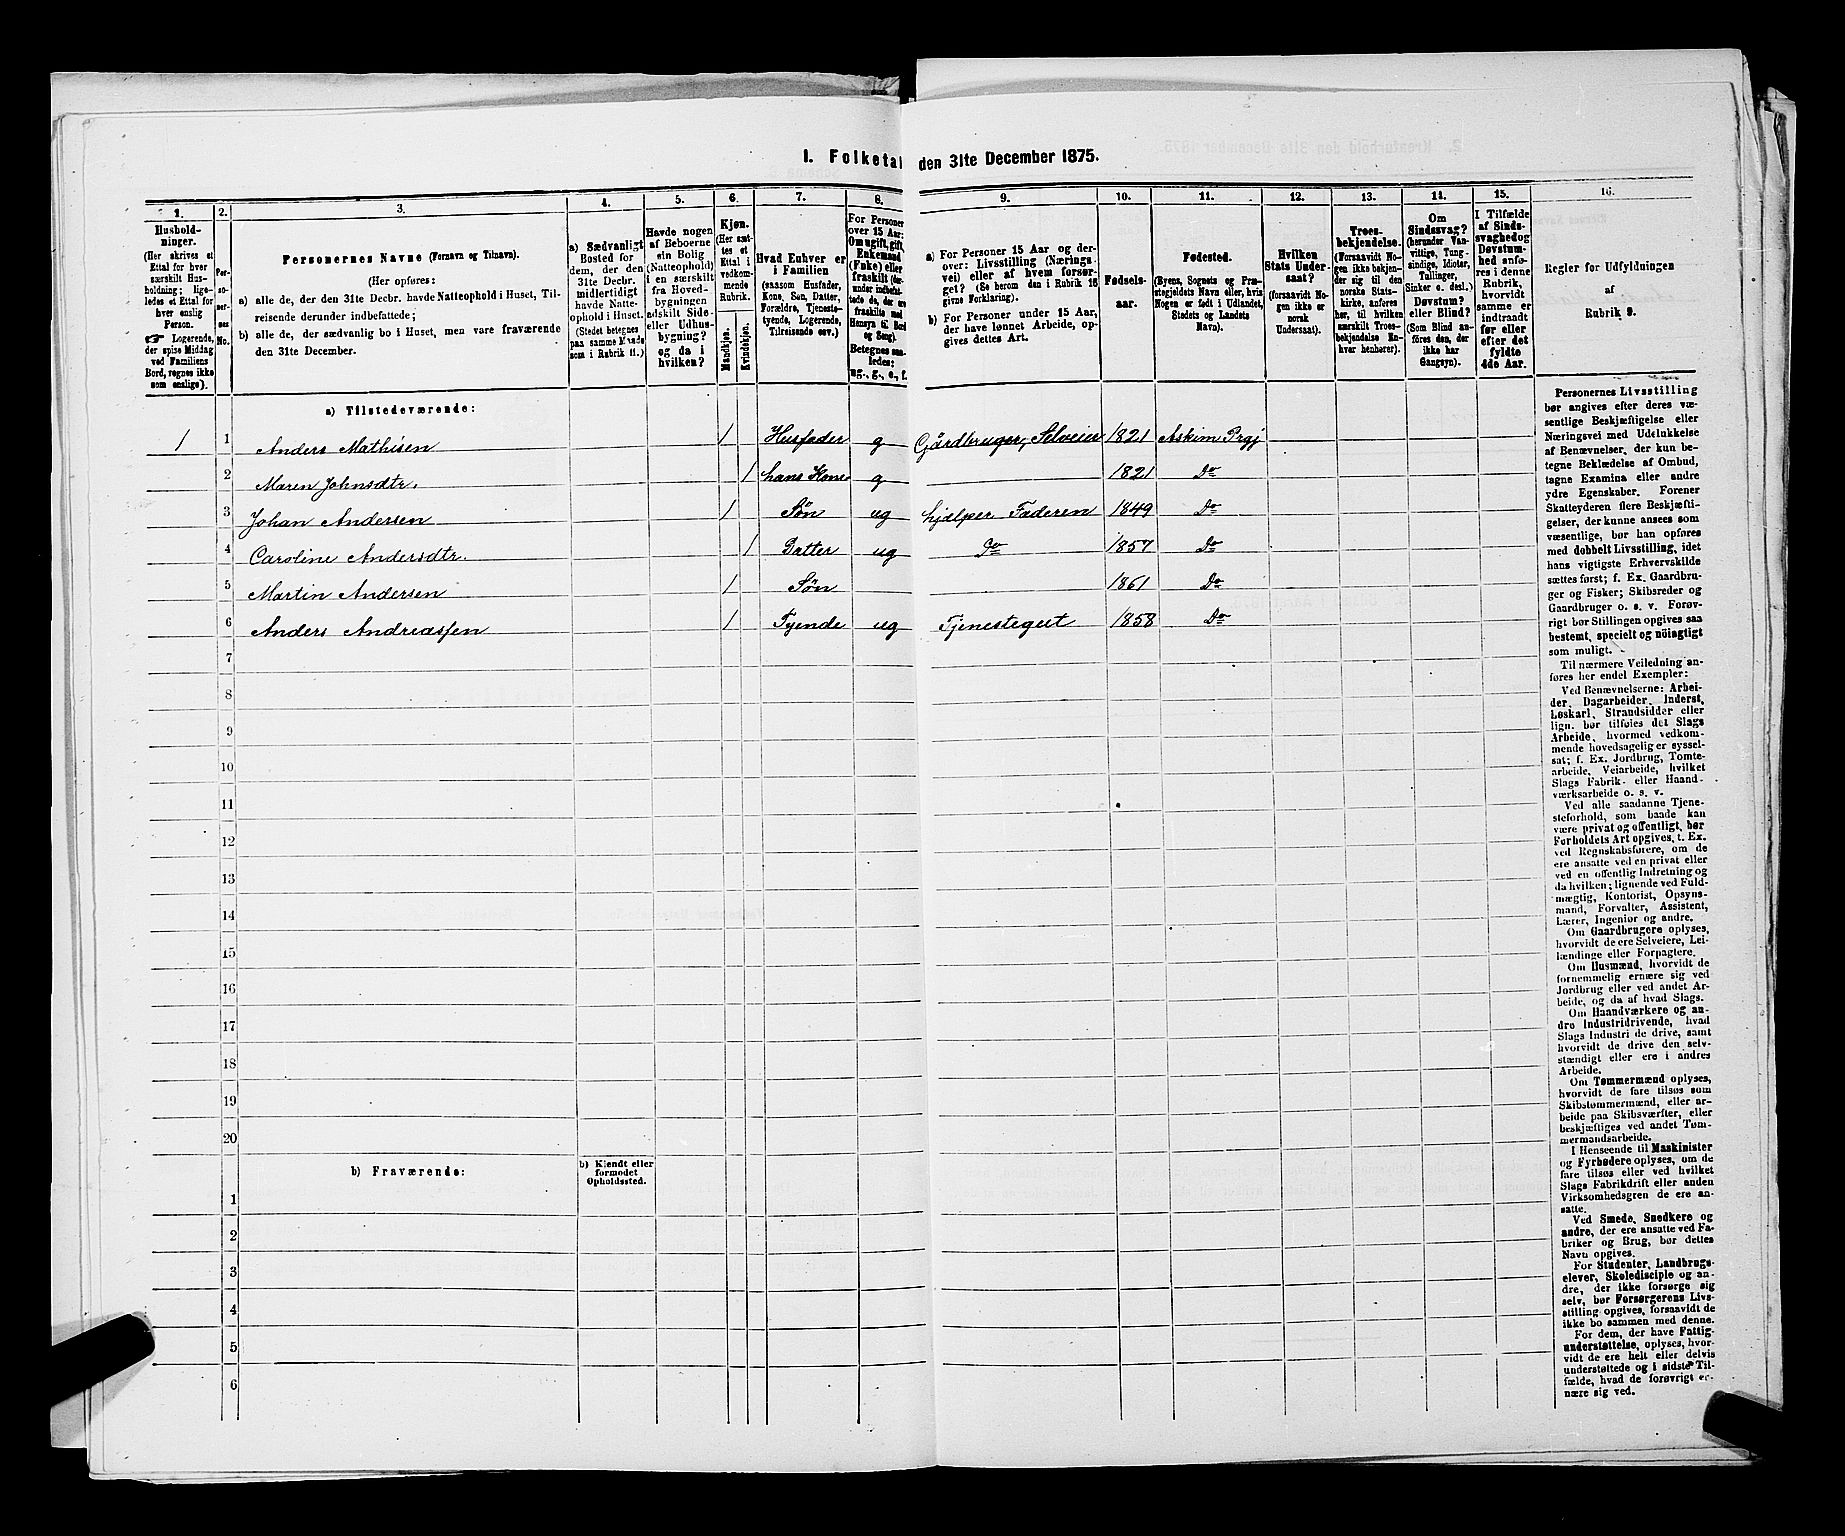 I. Folketal den 31te December 1875.
1. 2. 3. 4. 5. 6. 7. 8. 9. 10. 11. 12. 13. 14. 15. 16.
Hushold-
ninger.
(Her skrives et
Ettal for hver
særskilt Hus-
holdning; lige-
ledes et Ettal for
hver enslig
Person.
☞ Logerende,
der spise Middag
ved Familiens
Bord, regnes ikke
som enslige).
Per-
so-
ner-
nes
No.
Personernes Navne (Fornavn og Tilnavn).
(Her opføres:
a) alle de, der den 31te Decbr. havde Natteophold i Huset, Til-
reisende derunder indbefattede;
b) alle de, der sædvanlig bo i Huset, men vare fraværende
den 31te December.
a) Sædvanligt
Bosted for
dem, der den
31te Decbr.
midlertidigt
havde Natte-
ophold i Huset.
(Stedet betegnes
paa samme Maade
som i Rubrik 11.)
Havde nogen
af Beboerne
ein Bolig
(Natteophold)
i en særskilt
fra Hoved-
bygningen
adskilt Side-
eller Udhus-
bygning?
og da i
hvilken?
Kjøn.
(Her sæt-
tes et
Ettal i
vedkom-
mende
Rubrik.
Mandkjøn.
Kvindekjøn.
Hvad Enhver er
i Familien
(saasom Husfader,
Kone, Søn, Datter,
Forældre, Tjeneste-
tyende, Logerende,
Tilreisende osv.)
For Personer
over 15 Aar:
Om ugift, gift,
Enkemand
(Enke) eller
fraskilt
Betegnes saa-
ledes:
ug., g., e., f.
a) For Personer 15 Aar og der-
over: Livsstilling (Nærings-
vei) eller af hvem forsør-
get? (Se herom den i Rubrik 16
givne Forklaring).
b) For Personer under 15 Aar,
der have lønnet Arbeide, op-
gives dettes Art.
Fødsels-
aar.
Fødested.
(Byens, Sognets og Præ-
stegjeldets Navn eller, hvis
Nogen er født i Udlandet,
Stedets og Landets
Navn).
Hvilken
Stats Under-
saat?
(forsaavidt No-
gen ikke er
norsk
Undersaat).
Troes-
bekjendelse.
(Forsaavidt No-
gen ikke bekjen-
der sig til den
norske Stats-
kirke, anføres
her, til hvilken
særskilt Troes-
bekjendelse En-
hver henhører).
Om
Sindssvag?
(herunder Van-
vittige, Tung-
sindige, Idioter,
Tullinger,
Sinker o. desl.)
Døvstum?
eller Blind?
(Som Blind an-
føres den, der
ikke har
Gangsyn).
I Tilfælde
af Sinds-
svaghed og
Døvstum-
hed anfø-
res i denne
Rubrik,
hvorvidt
samme er
indtraadt
før eller
efter det
fyldte
4de Aar.
Regler for Udfyldningen
af
Rubrik 9.
a) Tilstedeværende:
1 1 Anders Mathisen 1 Husfader g Gjårdbruger, Selveier 1821 Askim Prgj
2 Maren Johnsdtr. 1 hans Kone g 1821 Do
3 Johan Andersen 1 Søn ug hjælper Faderen 1849 Do
4 Caroline Andersdtr. 1 Datter ug Do 1857 Do
5 Martin Andersen 1 Søn 1861 Do
6 Anders Andreassen 1 Tyende ug Tjenestegut 1858 Do
7
8
9
10
11
12
13
14
15
16
17
18
19
20
b) Fraværende:
b) Kjendt eller
formodet
Opholdssted.
1
2
3
4
5
6
Personernes Livsstilling
bør angives efter deres væ-
sentlige Beskjæftigelse eller
Næringsvei med Udelukkelse
af Benævnelser, der kun be-
tegne Beklædelse af Ombud,
tagne Examina eller andre
ydre Egenskaber. Forener
Skatteyderen flere Beskjæfti-
gelser, der kunne ansees som
væsentlige, bør han opføres
med dobbelt Livsstilling, idet
hans vigtigste Erhvervskilde
sættes først; f. Ex. Gaardbru-
ger og Fisker; Skibsreder og
Gaardbruger o. s. v. Forøv-
rigt bør Stillingen opgives saa
bestemt, specielt og nöiagtigt
som muligt.
Til nærmere Veiledning an-
føres her endel Exempler:
Ved Benævnelserne: Arbei-
der, Dagarbeider, Inderst,
Løskarl, Strandsidder eller
lign. bør tilføies det Slags
Arbeide, hvormed vedkom-
mende hovedsagelig er syssel-
sat; f. Ex. Jordbrug, Tomte-
arbeide, Veiarbeide, hvilket
Slags Fabrik- eller Haand-
værksarbeide o. s. v.
Ved alle saadanne Tjene-
steforhold, som baade kan
være privat og offentligt, bør
Forholdets Art opgives, t. Ex.
ved Regnskabsførere, om de
ere ansatte ved en privat eller
ved en offentlig Indretning og
da hvilken; lignende ved Fuld-
mægtig, Kontorist, Opsyns-
mand, Forvalter, Assistent,
Lærer, Ingeniør og andre.
Om Gaardbrugere oplyses,
hvorvidt de ere Selveiere, Lei-
lændinge eller Forpagtere.
Om Husmænd, hvorvidt de
fornemmelig ernære sig ved
Jordbrug eller ved andet Ar-
beide, og da af hvad Slags.
Om Haandværkere og an-
dre Industridrivende, hvad
Slags Industri de drive, samt
hvorvidt de drive den selv-
stændigt eller ere i andres
Arbeide.
Om Tømmermænd oplyses,
hvorvidt de fare tilsøs som
Skibstømmermænd, eller ar-
beide paa Skibsværfter, eller
beskjæftiges ved andet Tøm-
mermandsarbeide.
I Henseende til Maskinister
og Fyrbødere oplyses, om de
fare tilsøs eller ved hvilket
Slags Fabrikdrift eller anden
Virksomhedsgren de ere an-
satte.
Ved Smede, Snedkere og
andre, der ere ansatte ved Fa-
briker og Brug, bør dettes
Navn opgives.
For Studenter, Landbrugs-
elever, Skoledisciple og an-
dre, der ikke forsørge sig
selv, bør Forsørgerens Livs-
stilling opgives, forsaavidt de
ikke bo sammen med denne.
For dem, der have Fattig-
understøttelse, oplyses, hvor-
vidt de ere helt eller delvis
understøttede og i sidste Til-
fælde, hvad de forøvrigt er-
nære sig ved.